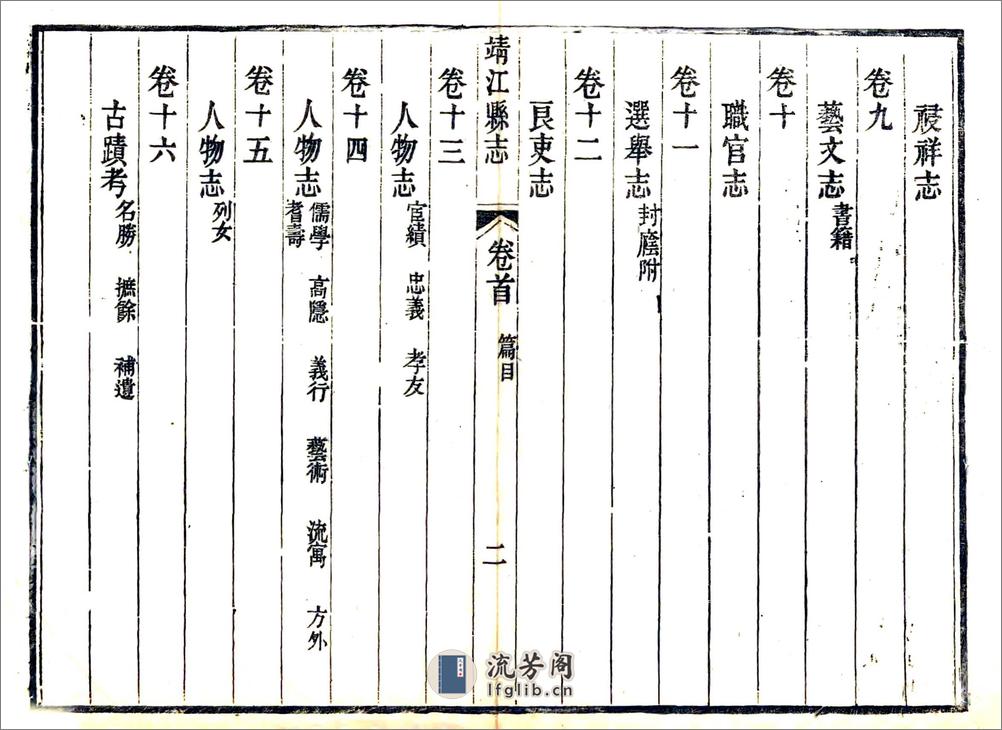 祲祥志
卷九
藝文志 書籍
卷十
職官志
卷十一
選舉志 封廕附
卷十二
良吏志
靖江縣志 卷首 篇目 二
卷十三
人物志 宦績 忠義 孝友
卷十四
人物志 儒學 高隱 義行 藝術 流寓 方外 耆壽
卷十五
人物志 列女
卷十六
古蹟考 名勝 摭餘 補遺
流芳阁
lfglib.cn